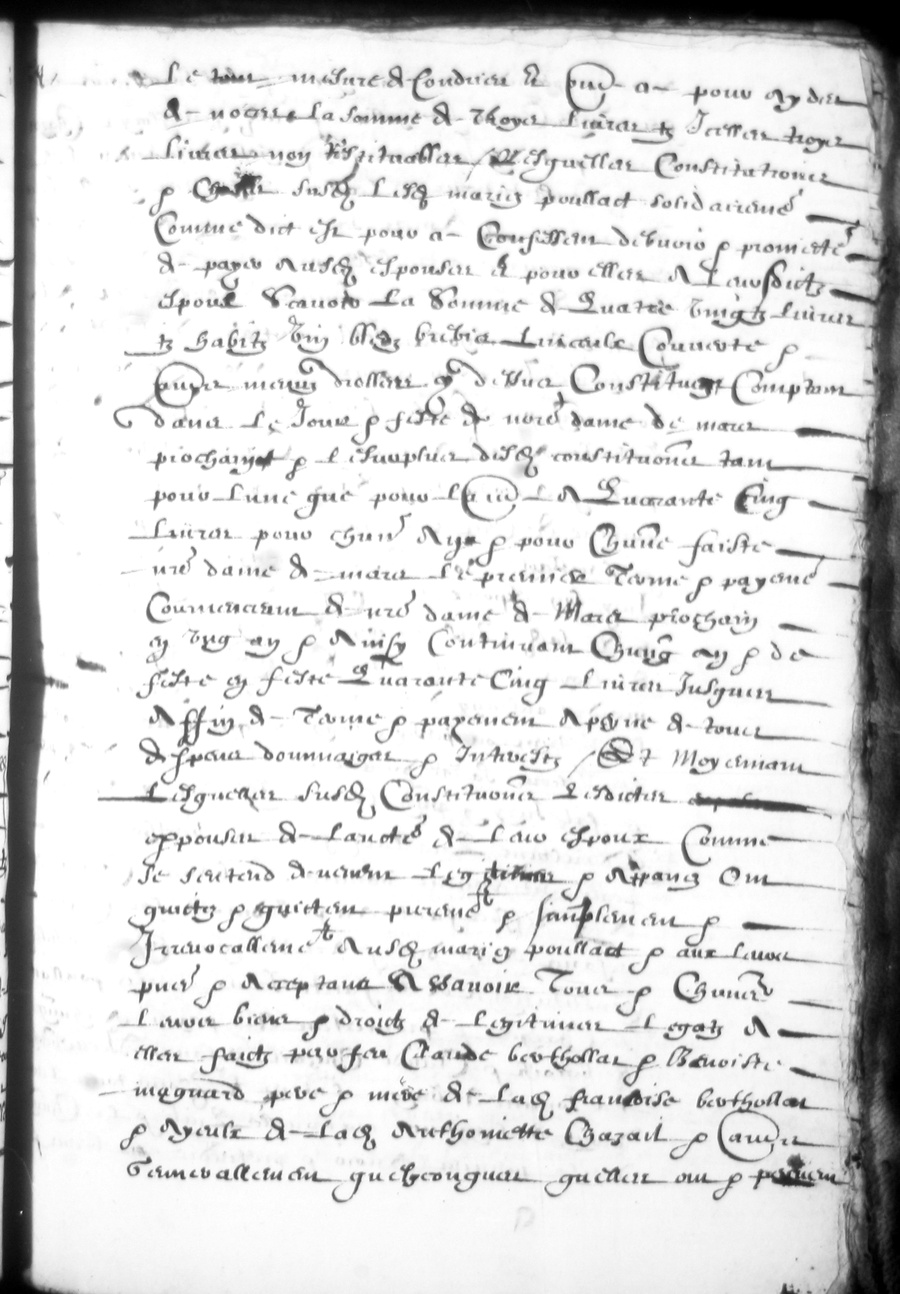 le tout mesure de Condrieu Et pour ayder
de nopces la somme de troys livres tz Icelles troys
livres non Restituables / Lesquelles Constitutions
p susd lesd mariez poullact solidairemt
Comme dict est pour a Confessent debvoir p promecte
de payer Ausd espouses et pour elles A leursdictz
espoulx Scavoir la Somme de Quatre vingtz livres
tz habitz vin bled brebis linceulx Couverte p
autres menuz Constituez Comptant
dans le Jour p feste de nore dame de mars
prochainet p lesurplus desd constitutions tant
pour lune que pour laue A Quarante Cinq
livres pour chun An p pour Chune faiste
nre dame de mars le premier Terme p payemt
Commencant de nre dame de Mars prochain
en ung an p Ainsy Continuant Chung an p de
feste en feste Quarante Cinq livres Jusques
A ffin de Terme p payement A peyne de tous
despens dommaiges p Interestz / Et Moyennant
Lesquelles susd Constitutions Lesdictes
espouses de lauctte de leurs espoux Comme
se sentend p Ont
quictez p quictent puremt p simplement p
Irrevocablemt Ausd mariez poullact p aux leurs
pnts p Acceptans A scavoir Tous p Chuns
leurs biens p droictz de legitimes legatz A
elles faictz par feu Claude berthollat p Benoiste
maguard pere p mere de lad francoise berthollat
p Ayeulx de lad Anthoniette Chazail p autres
Generallement quelzconques quelles ont p